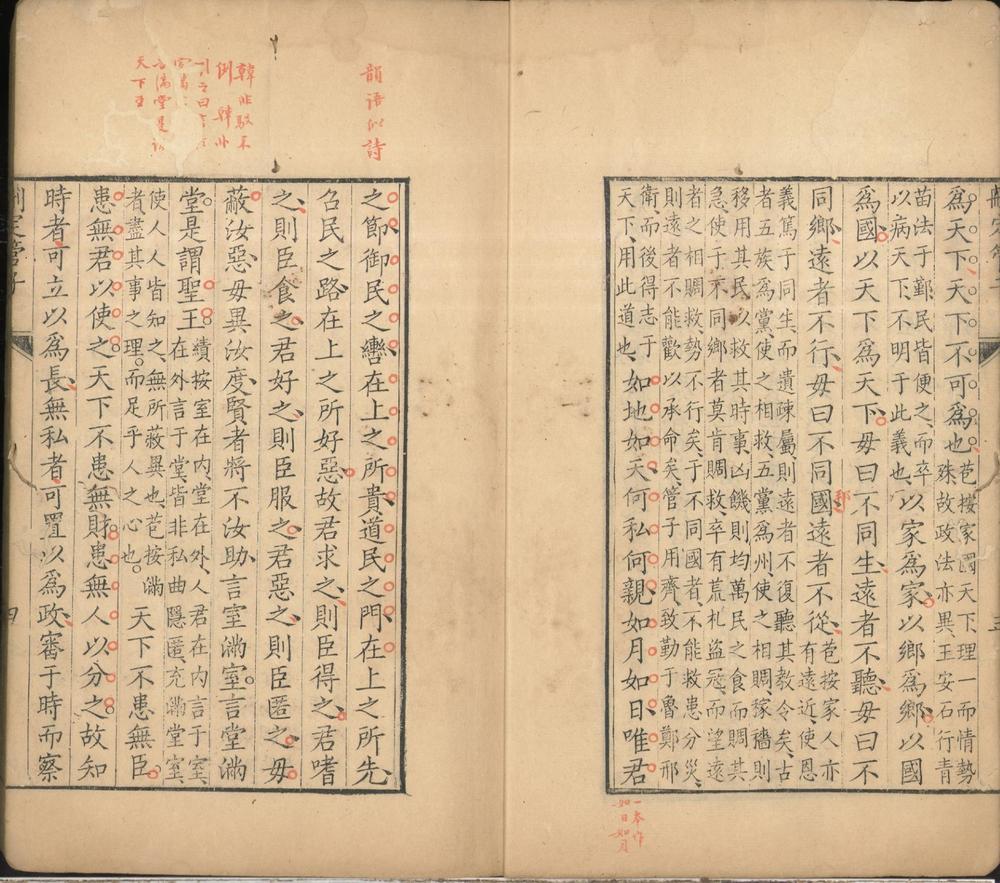 為天下天下不可為也
苞按家國天下理一而情勢
殊故政法亦異王安石行青
苗法于鄞民皆便之而卒
以病天下不明于此義也
以家為家以鄉為鄉以國
為國以天下為天下毋曰不同生遠者不聽毋曰不
同鄉遠者不行毋曰不同國遠者不從
苞按家人亦
有遠近使恩
義篤于同生而遺疎屬則遠者不復聽其教令矣古
者五族為黨使之相救五黨為州使之相賙稼穡則
移用其民以救其時事凶饑則均萬民之食而賙其
急使于不同鄉者莫肯賙救卒有荒札盜寇而望遠
者之相賙救勢不行矣于不同國者不能救患分災
則遠者不能歡以承命矣管子用齊致勤于魯鄭邢
衛而後得志于
天下用此道也
如地如天何私何親如月如日唯君
一本作
如日如月
韻語似詩
之節御民之轡在上之所貴道民之門在上之所先
召民之路在上之所好惡故君求之則臣得之君嗜
之則臣食之君好之則臣服之君惡之則臣匿之毋
蔽汝惡毋異汝度賢者將不汝助言室滿室言堂滿
堂是謂聖王
續按室在內堂在外人君在內言于室
在外言于堂皆非私曲隱匿充滿堂室
使人人皆知之無所蔽異也苞按滿
者盡其事之理而足乎人之心也
天下不患無臣
患無君以使之天下不患無財患無人以分之故知
時者可立以為長無私者可置以為政審于時而察
四